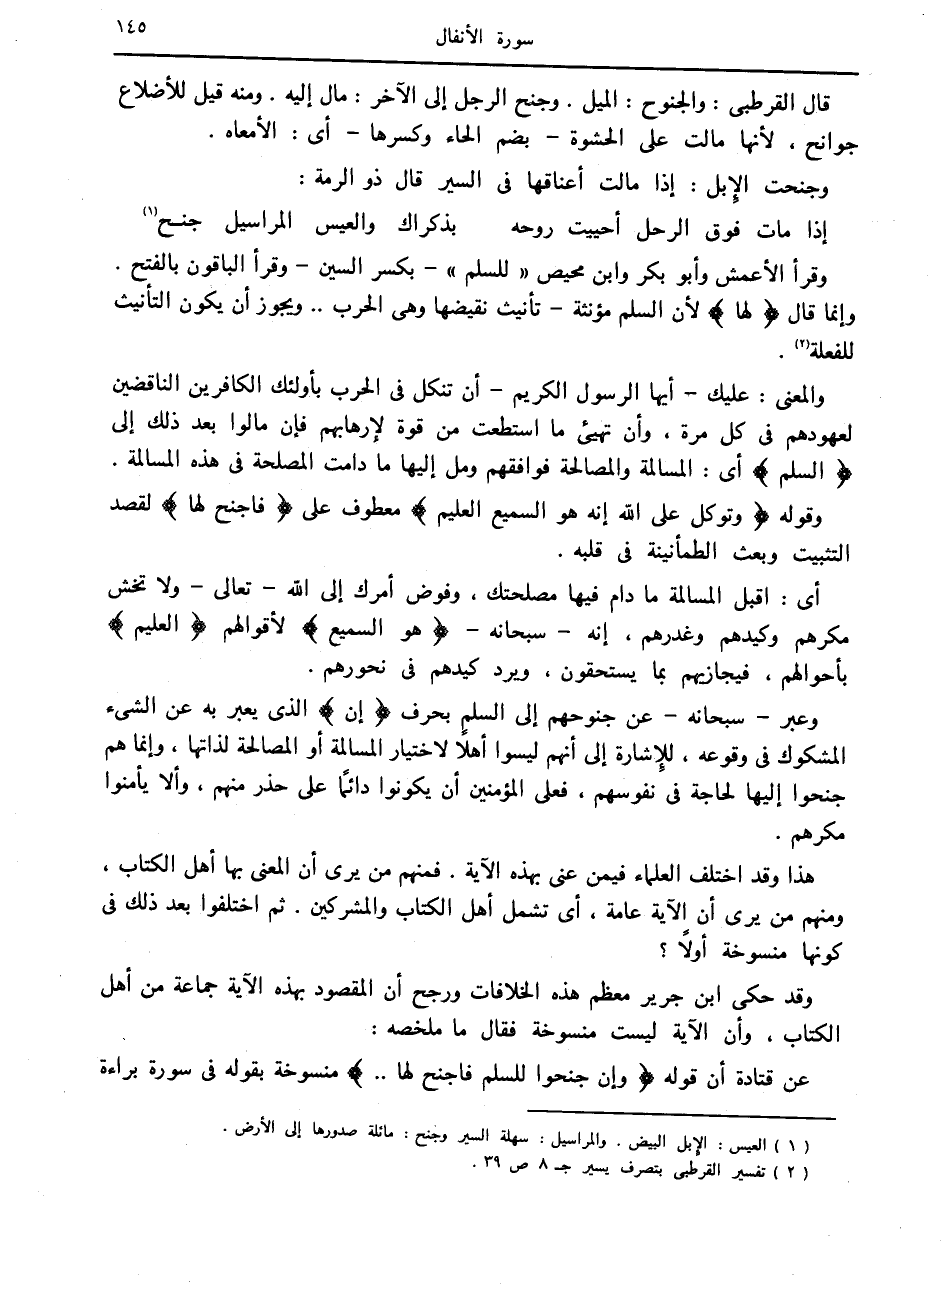 سورة الأنفال
١٤٥
قال القرطبى : والجنوح : الميل . وجنح الرجل إلى الآخر : مال إليه . ومنه قيل للأضلاع
جوانح ، لأنها مالت على الحشوة – بضم الحاء وكسرها – أى : الأمعاه .
وجنحت الإِبل : إذا مالت أعناقها فى السير قال ذو الرمة :
إذا مات فوق الرحل أحييت روحه بذكراك والعيس المراسيل جنـح(١)
وقرأ الأعمش وأبو بكر وابن محيص « للسلم » – بكسر السين – وقرأ الباقون بالفتح .
وإنما قال ﴿ لها ﴾ لأن السلم مؤنثة – تأنيث نقيضها وهى الحرب .. ويجوز أن يكون التأنيث
للفعلة(٢) .
والمعنى : عليك – أيها الرسول الكريم – أن تنكل فى الحرب بأولئك الكافرين الناقضين
لعهودهم فى كل مرة ، وأن تهيئ ما استطعت من قوة لإرهابهم فإن مالوا بعد ذلك إلى
﴿ السلم ﴾ أى : المسالة والمصالحة فوافقهم ومل إليها ما دامت المصلحة فى هذه المسالمة .
وقوله ﴿ وتوكل على الله إنه هو السميع العليم ﴾ معطوف على ﴿ فاجنح لها ﴾ لقصد
التثبيت وبعث الطمأنينة فى قلبه .
أى : اقبل المسالمة ما دام فيها مصلحتك ، وفوض أمرك إلى الله – تعالى – ولا تخش
مكرهم وكيدهم وغدرهم ، إنه – سبحانه – ﴿ هو السميع ﴾ لأقوالهم ﴿ العليم ﴾
بأحوالهم ، فيجازيهم بما يستحقون ، ويرد كيدهم فى نحورهم .
وعبر – سبحانه – عن جنوحهم إلى السلم بحرف ﴿ إن ﴾ الذى يعبر به عن الشىء
المشكوك فى وقوعه ، للإِشارة إلى أنهم ليسوا أهلًا لاختيار المسالمة أو المصالحة لذاتها ، وإنما هم
جنحوا إليها لحاجة فى نفوسهم ، فعلى المؤمنين أن يكونوا دائمًا على حذر منهم ، وألا يأمنوا
مكرهم .
هذا وقد اختلف العلماء فيمن عنى بهذه الآية . فمنهم من يرى أن المعنى بها أهل الكتاب ،
ومنهم من يرى أن الآية عامة ، أى تشمل أهل الكتاب والمشركين . ثم اختلفوا بعد ذلك فى
كونها منسوخة أولًا ؟
وقد حكى ابن جرير معظم هذه الخلافات ورجح أن المقصود بهذه الآية جماعة من أهل
الكتاب ، وأن الآية ليست منسوخة فقال ما ملخصه :
عن قتادة أن قوله ﴿ وإن جنحوا للسلم فاجنح لها .. ﴾ منسوخة بقوله فى سورة براءة
( ١ ) العيس : الإِبل البيض . والمراسيل : سهلة السير وجنح : مائلة صدورها إلى الأرض .
( ٢ ) تفسير القرطبى بتصرف يسير جـ ٨ ص ٣٩ .